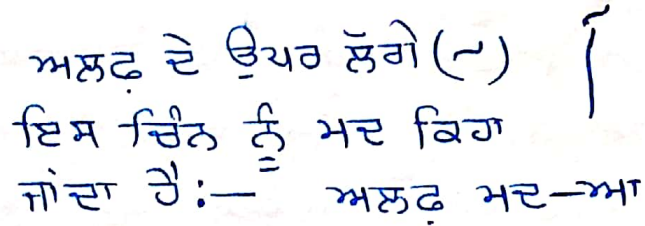 ਅਲਫ਼ ਦੇ ਉਪਰ ਲੱਗੇ (~) آ
ਇਸ ਚਿੰਨ ਨੂੰ ਮਦ ਕਿਹਾ
ਜਾਂਦਾ ਹੈ :— ਅਲਫ਼ ਮਦ–ਆ